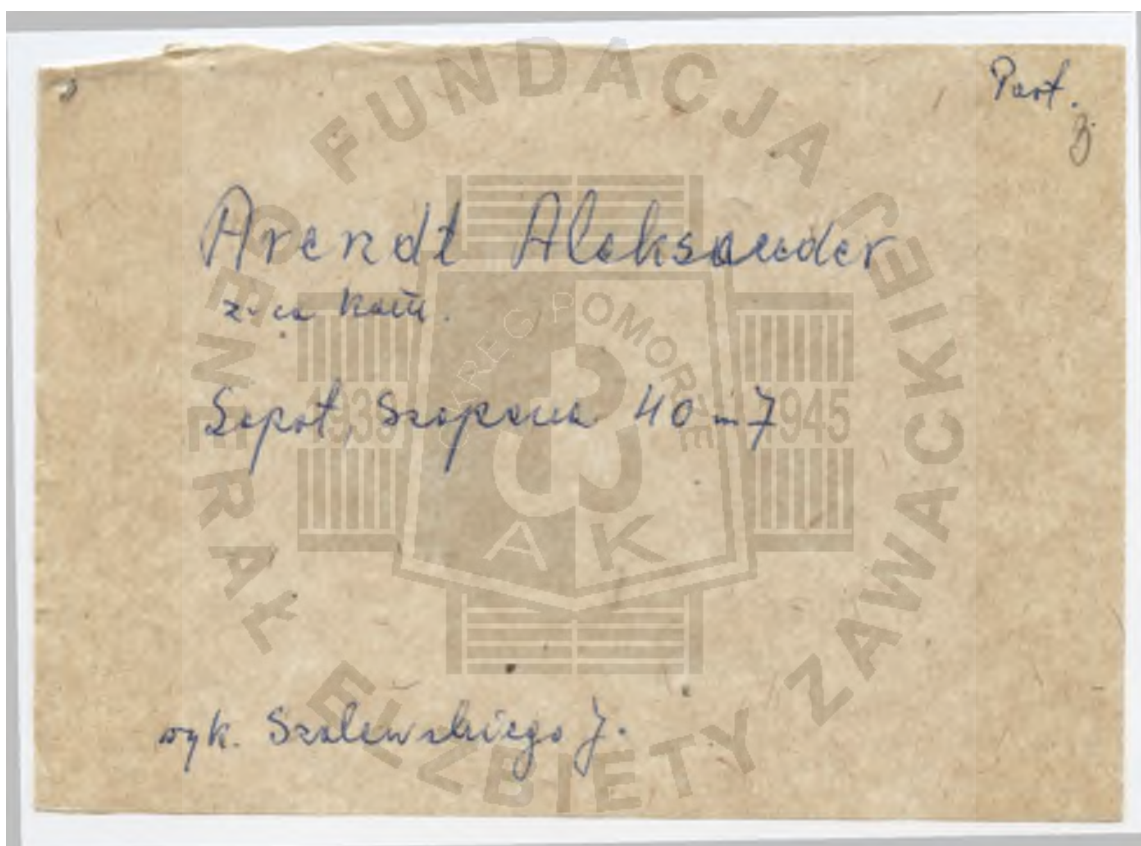 Part.
Arendt Aleksander
z-ca kom.
Sopot, Szopena 40 m 7
wyk. Szalewskiego J.
FUNDACJA GENERAŁ ELŻBIETY ZAWACKIEJ
OKRĘG POMORZE
1939 1945
AK